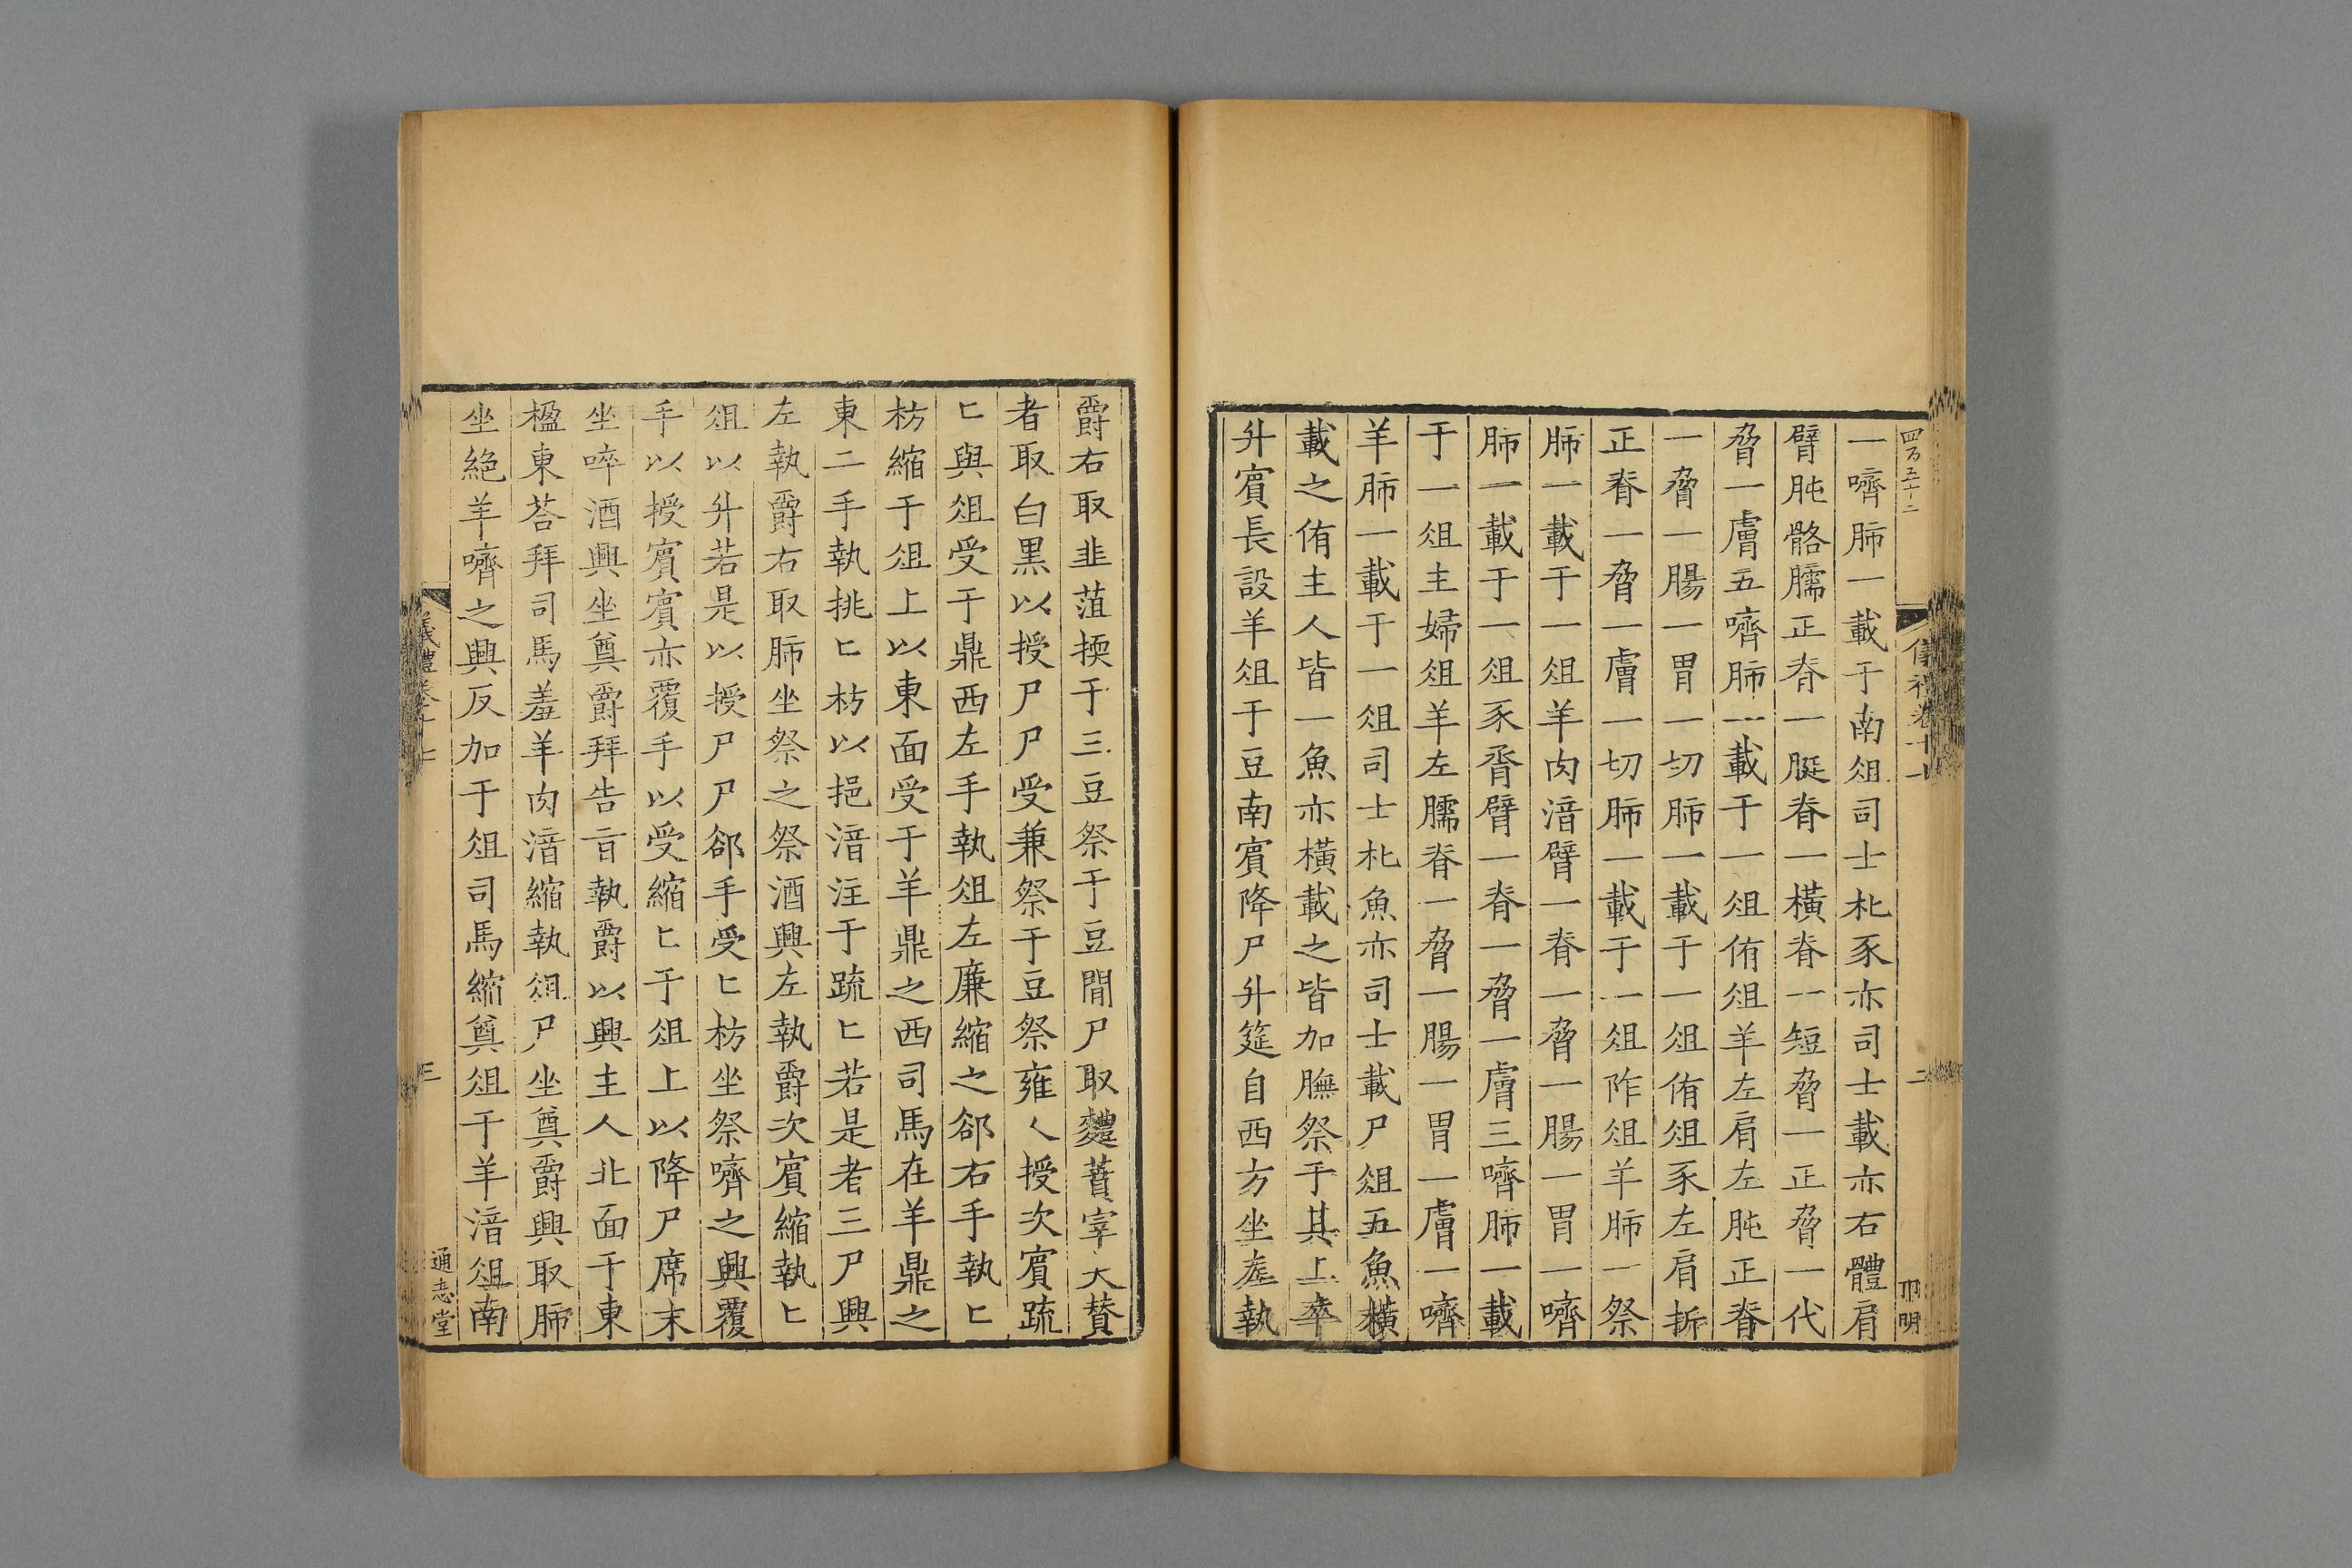 四百五十二
一嚌肺一載于南俎司士朼豕亦司士載亦右體肩
臂肫骼臑正脊一脡脊一橫脊一短脅一正脅一代
脅一膚五嚌肺一載于一俎侑俎羊左肩左肫正脊
一脅一腸一胃一切肺一載于一俎侑俎豕左肩折
正脊一脅一膚一切肺一載于一俎阼俎羊肺一祭
肺一載于一俎羊肉湆臂一脊一脅一腸一胃一嚌
肺一載于一俎豕脀臂一脊一脅一膚三嚌肺一載
于一俎主婦俎羊左臑脊一脅一腸一胃一膚一嚌
羊肺一載于一俎司士朼魚亦司士載尸俎五魚橫
載之侑主人皆一魚亦橫載之皆加膴祭于其上卒
升賓長設羊俎于豆南賓降尸升筵自西方坐左執
二
爵右取韭菹㨎于三豆祭于豆間尸取麷蕡宰夫贊
者取白黑以授尸尸受兼祭于豆祭雍人授次賓疏
匕與俎受于鼎西左手執俎左廉縮之郤右手執匕
枋縮于俎上以東面受于羊鼎之西司馬在羊鼎之
東二手執挑匕枋以挹湆注于疏匕若是者三尸興
左執爵右取肺坐祭之祭酒興左執爵次賓縮執匕
俎以升若是以授尸尸郤手受匕枋坐祭嚌之興覆
手以授賓賓亦覆手以受縮匕于俎上以降尸席末
坐啐酒興坐奠爵拜告旨執爵以興主人北面于東
楹東荅拜司馬羞羊肉湆縮執俎尸坐奠爵興取肺
坐絕羊嚌之興反加于俎司馬縮奠俎于羊湆俎南
儀禮卷十七
三
通志堂